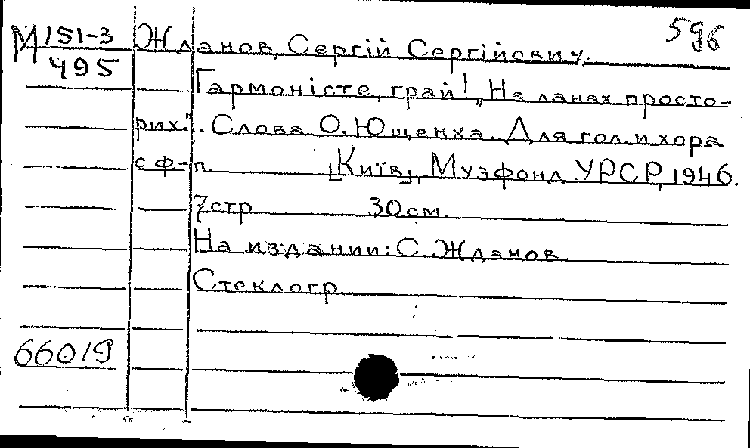 596
М 151-3 Жданов, Сергій Сергійович.
495
Гармоністе, грай! „На ланах просто-
рих". Слова О. Ющенка. Для гол. и хора
с ф-п. [Київ], Музфонд УРСР, 1946.
7 стр 30 см.
На издании: С. Жданов
Стеклогр
66019